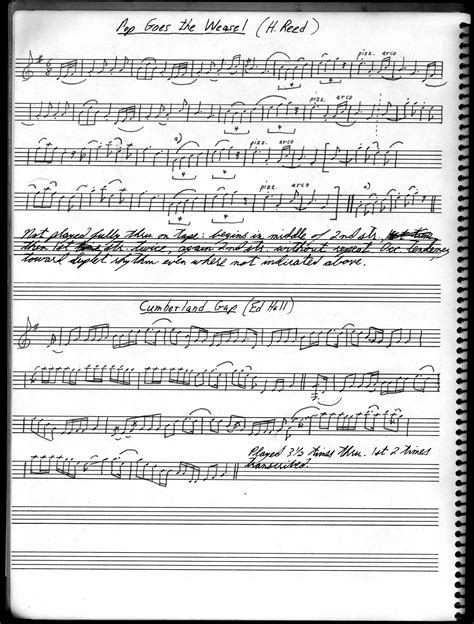 Pop Goes the Weasel (H. Reed)
pizz. arco
pizz. arco
a) pizz. arco
pizz. arco a)
Not played fully thru on tape: begins in middle of 2nd str.
then 1st str twice, again 2nd str. without repeat. Occ. tendency
toward duplet rhythm even where not indicated above.
Cumberland Gap (Ed Hall)
Played 3½ times thru. 1st 2 times
transcribed.